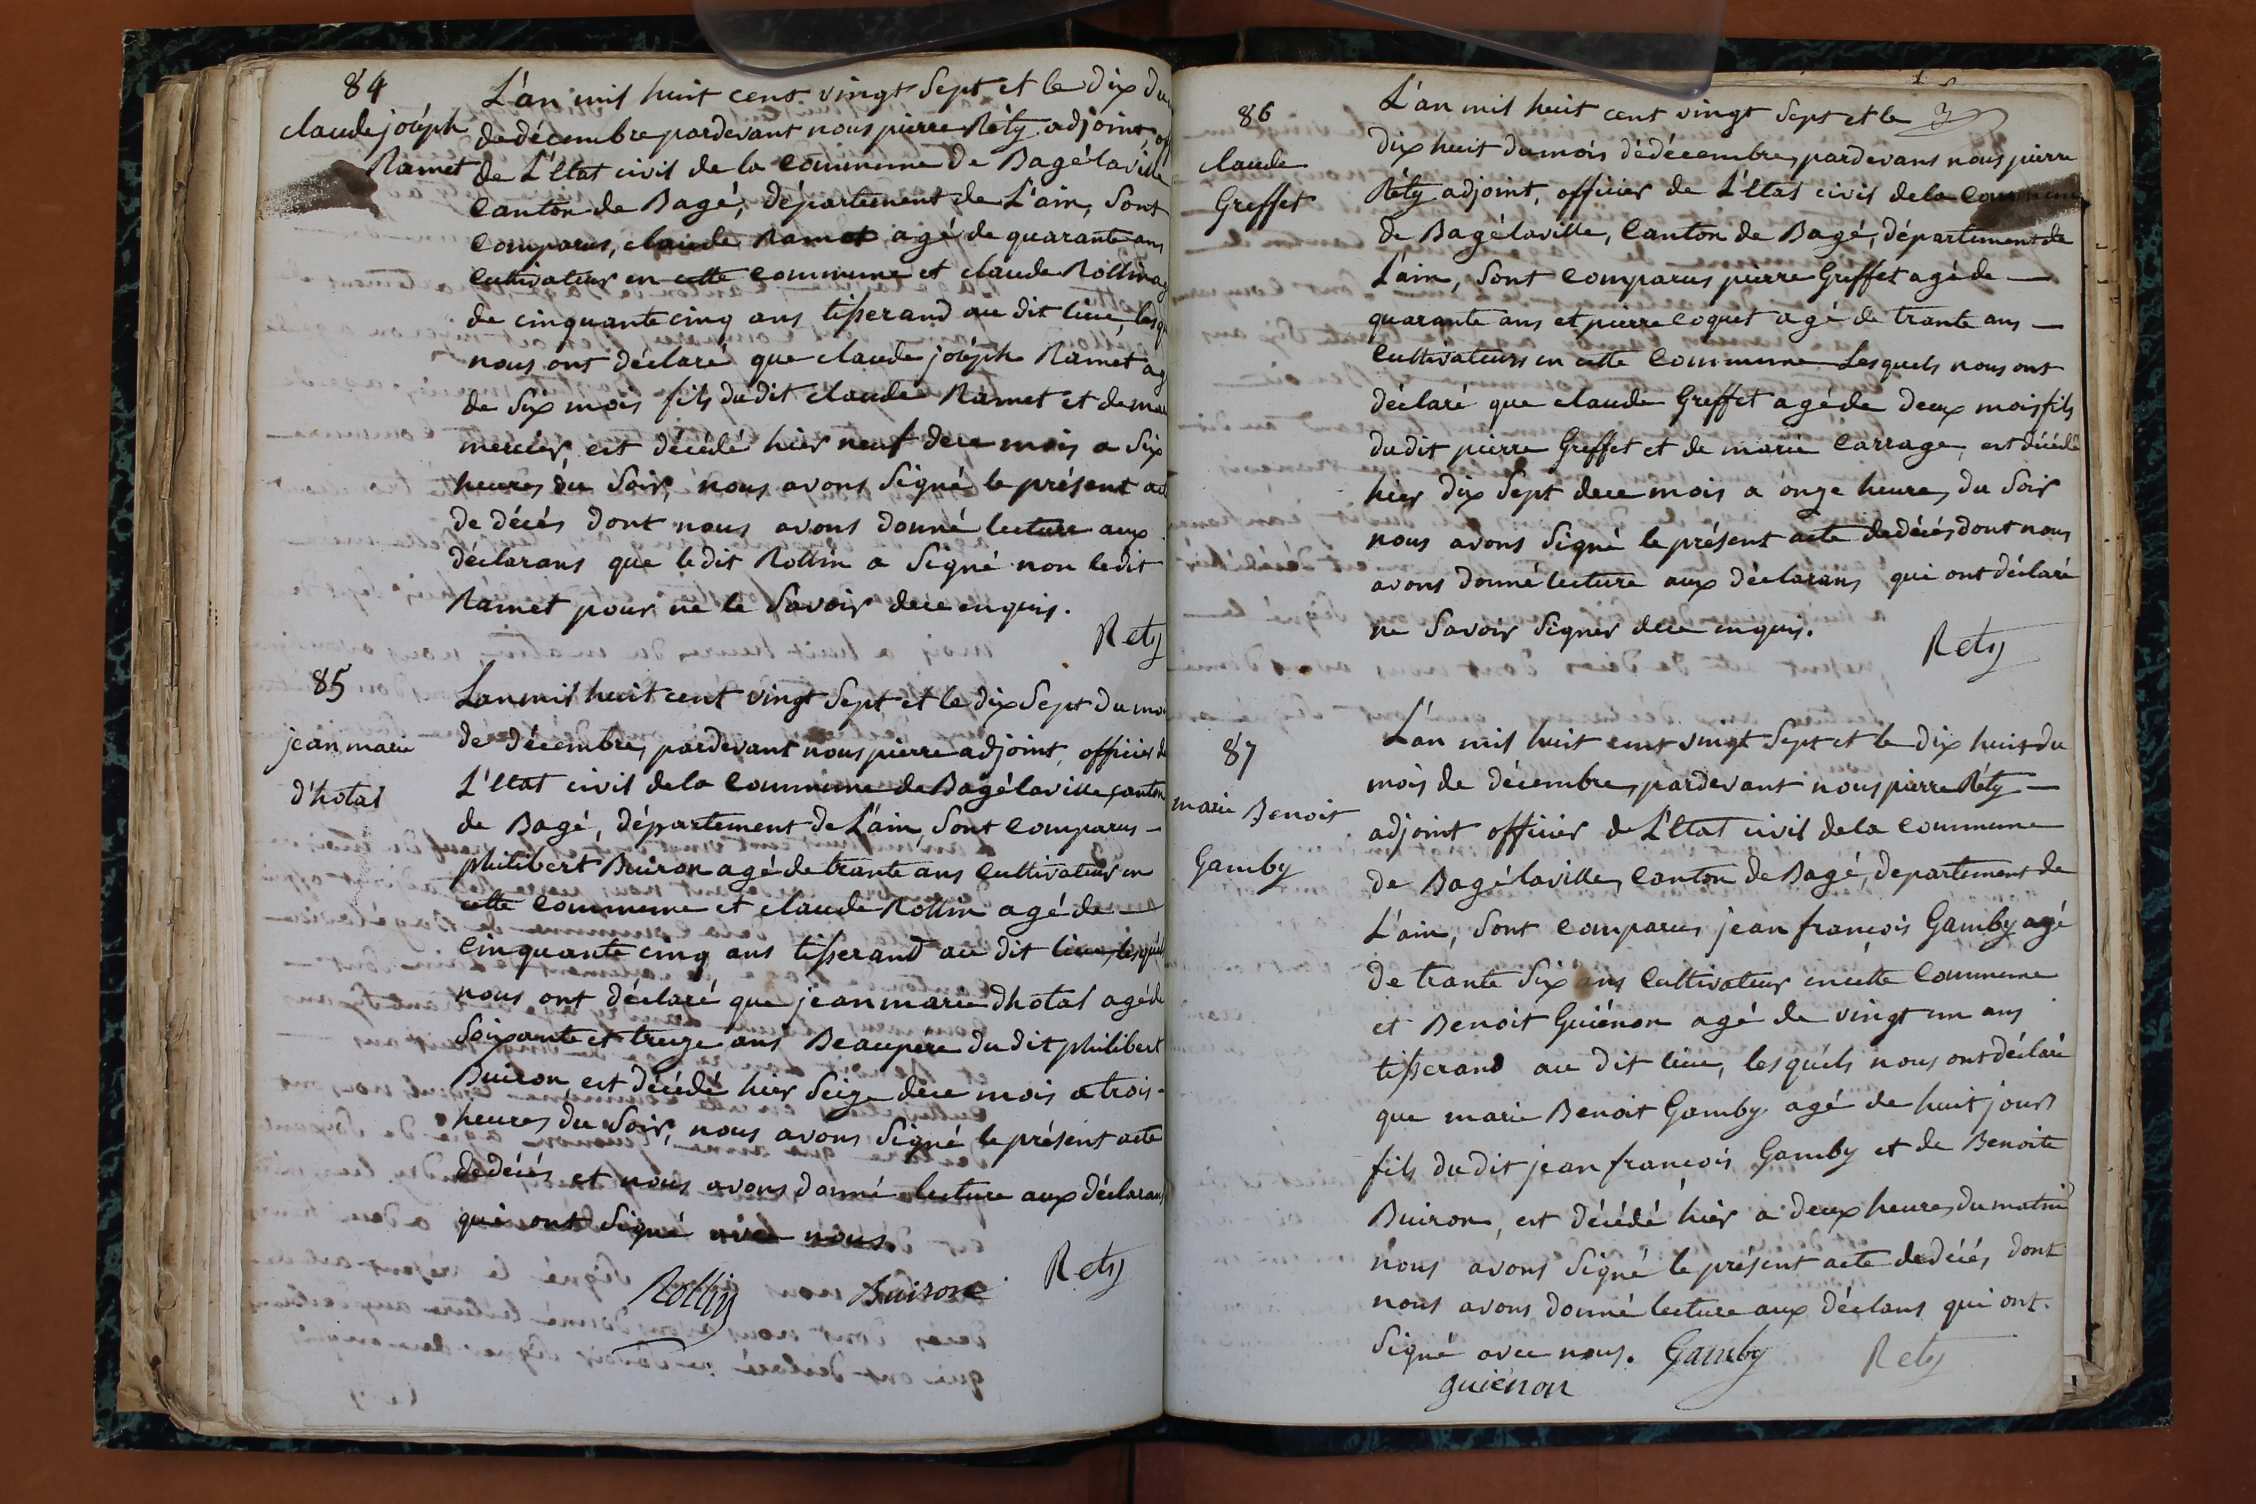 84
claude joséph
Ramet
L'an mil huit cent vingt Sept et le dix du
de décembre pardevant nous pierre Réty adjoint, of
de L'Etat civil de la Commune de Bagélaville
Canton de Bagé, département de L'ain, Sont
Comparus, claude Ramet agé de quarante ans
Cultivateur en cette Commune et claude Rollin ag
de cinquante cinq ans tisserand au dit lieu, lesq
nous ont déclaré que claude joséph Ramet ag
de Six mois fils du dit claude Ramet et de ma
mercier est décédé hier neuf de ce mois a Six
heures du Soir, nous avons Signé le présent act
de décés dont nous avons donné lecture aux
déclarans que le dit Rollin a Signé non le dit
Ramet pour ne le Savoir de ce enquis.
Rety
85
jean marie
d'hotal
L'an mil huit cent vingt Sept et le dix Sept du mo
de décembre, pardevant nous pierre adjoint, officier de
L'Etat civil de la Commune de Bagélaville, canton
de Bagé, département de L'ain, Sont Comparus -
philibert Buiron agé de trante ans Cultivateur en
cette Commune et claude Rollin agé de -
Cinquante cinq ans tisserand au dit lieu, lesquels
nous ont déclaré que jean marie dhotal agé de
Soixante et treize ans Beaupére du dit philibert
Buiron, est décédé hier Seize de ce mois a trois -
heures du Soir, nous avons Signé le présent acte
de décés et nous avons donné lecture aux déclarans
qui ont Signé avec nous.
Rollin Buirone Rety
86
claude
Greffet
L'an mil huit cent vingt Sept et le
dix huit du mois de décembre, pardevans nous pierre
Réty adjoint, officier de L'Etat civil de la Commune
de Bagélaville, Canton de Bagé, département de
L'ain, Sont Comparus pierre Greffet agé de -
quarante ans et pierre Coquet agé de trante ans -
Cultivateurs en cette Commune Lesquels nous ont
déclaré que claude Greffet agé de deux mois fils
du dit pierre Greffet et de marie Carrage, est décédé
hier dix Sept de ce mois a onze heures du Soir
nous avons Signé le présent acte de décés dont nous
avons donné lecture aux déclarans qui ont déclaré
ne Savoir Signer de ce enquis.
Rety
87
marie Benoit
Gamby
L'an mil huit cent vingt Sept et le dix huit du
mois de décembre, pardevant nous pierre Réty -
adjoint officier de L'Etat civil de la Commune
de Bagélaville, Canton de Bagé, departement de
L'ain, Sont Comparus jean francois Gamby agé
de trante Six ans Cultivateur en cette Commune
et Benoit Guiénon agé de vingt un ans
tisserand au dit lieu, lesquels nous ont déclaré
que marie Benoit Gamby agé de huit jours
fils du dit jean francois Gamby et de Benoite
Buiron, est décédé hier a deux heures du matin
nous avons Signé le présent acte de décés dont
nous avons donné lecture aux déclans qui ont
Signé avec nous. Gamby Rety
guiénon